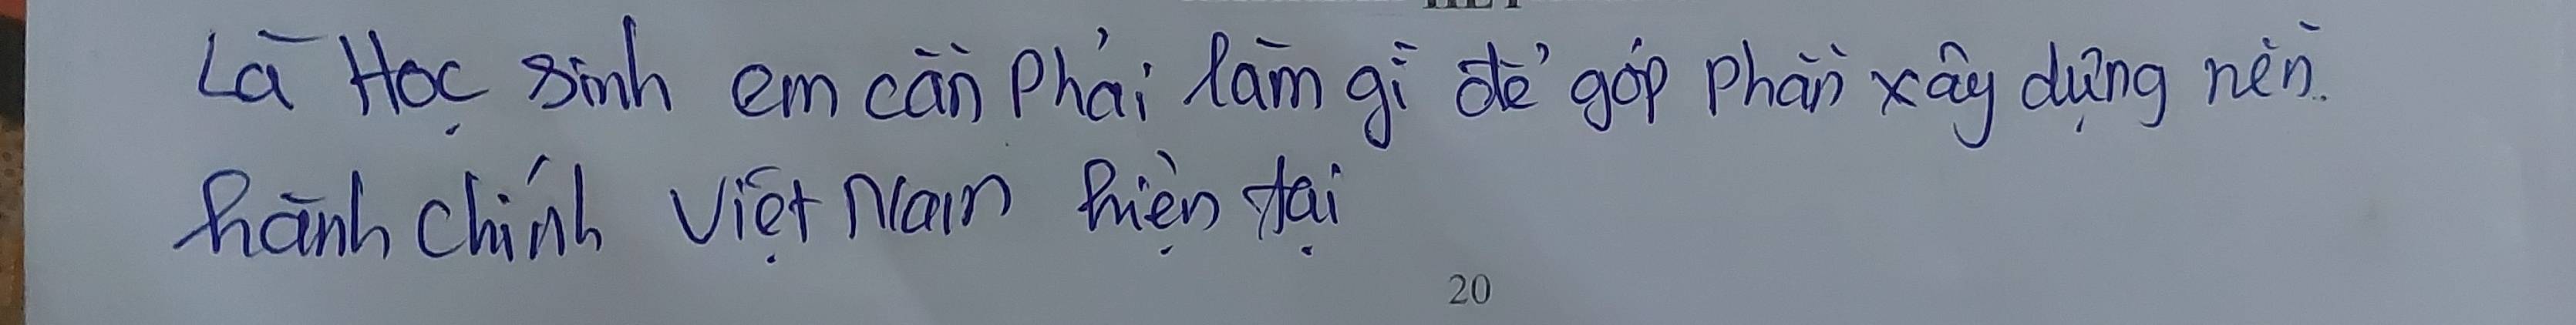 Là Học sinh em cần phải làm gì để góp phần xây dựng nền.
hành chính Việt Nam hiện tại
20